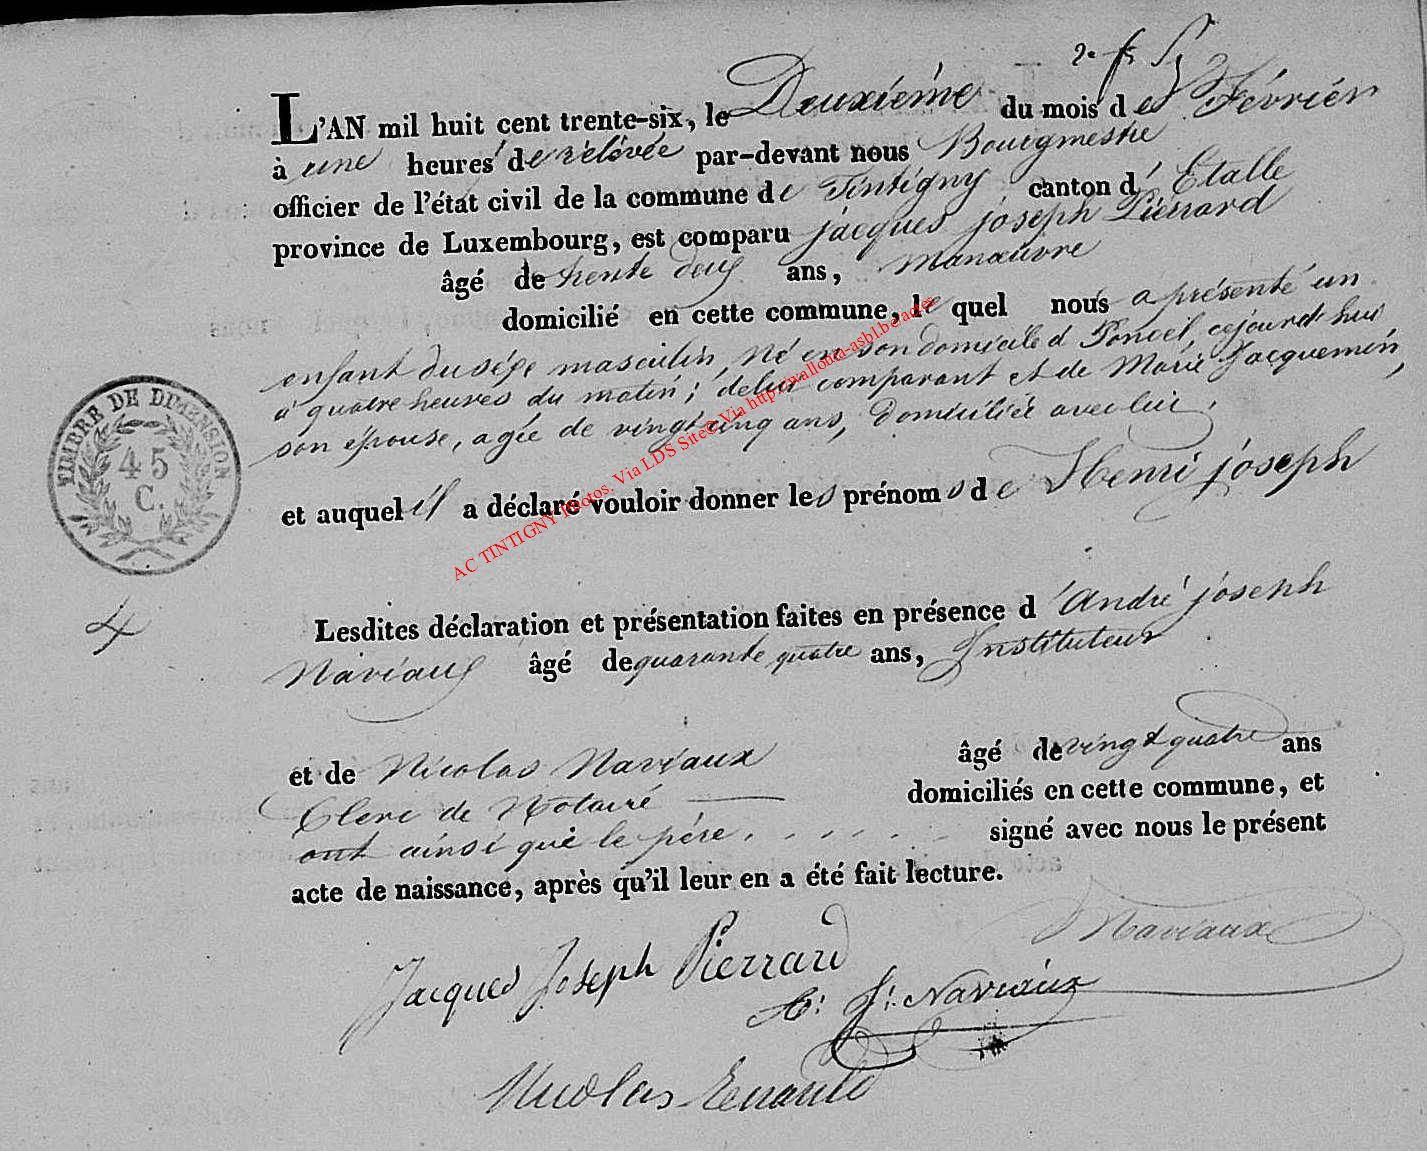 L'AN mil huit cent trente-six, le Deuxième du mois de Février
à une heures de rélévée par-devant nous Bourgmestre
officier de l'état civil de la commune de Tintigny canton d'Etalle
province de Luxembourg, est comparu jacques joseph Pierrard
âgé de trente deux ans, Manœuvre
domicilié en cette commune, le quel nous a présenté un
enfant du séxe masculin, né en son domicile d Poncel, cejourd'hui
à quatre heures du matin; de lui comparant et de Marie Jacquemin,
son épouse, agée de vingt cinq ans, domiciliée avec lui,
TIMBRE DE DIMENSION
45
C.
et auquel il a déclaré vouloir donner les prénoms de Henri joseph
AC TINTIGNY Photos. Via LDS Site© Via http://wallonia-asbl.be/actes
4
Lesdites déclaration et présentation faites en présence d'André joseph
Naviaux âgé de quarante quatre ans, Instituteur
et de Nicolas Naviaux âgé de vingt quatre ans
Clerc de Notaire domiciliés en cette commune, et
ont ainsi que le père signé avec nous le présent
acte de naissance, après qu'il leur en a été fait lecture.
Naviaux
Jacques Joseph Pierrard
A: J: Naviaux
Nicolas